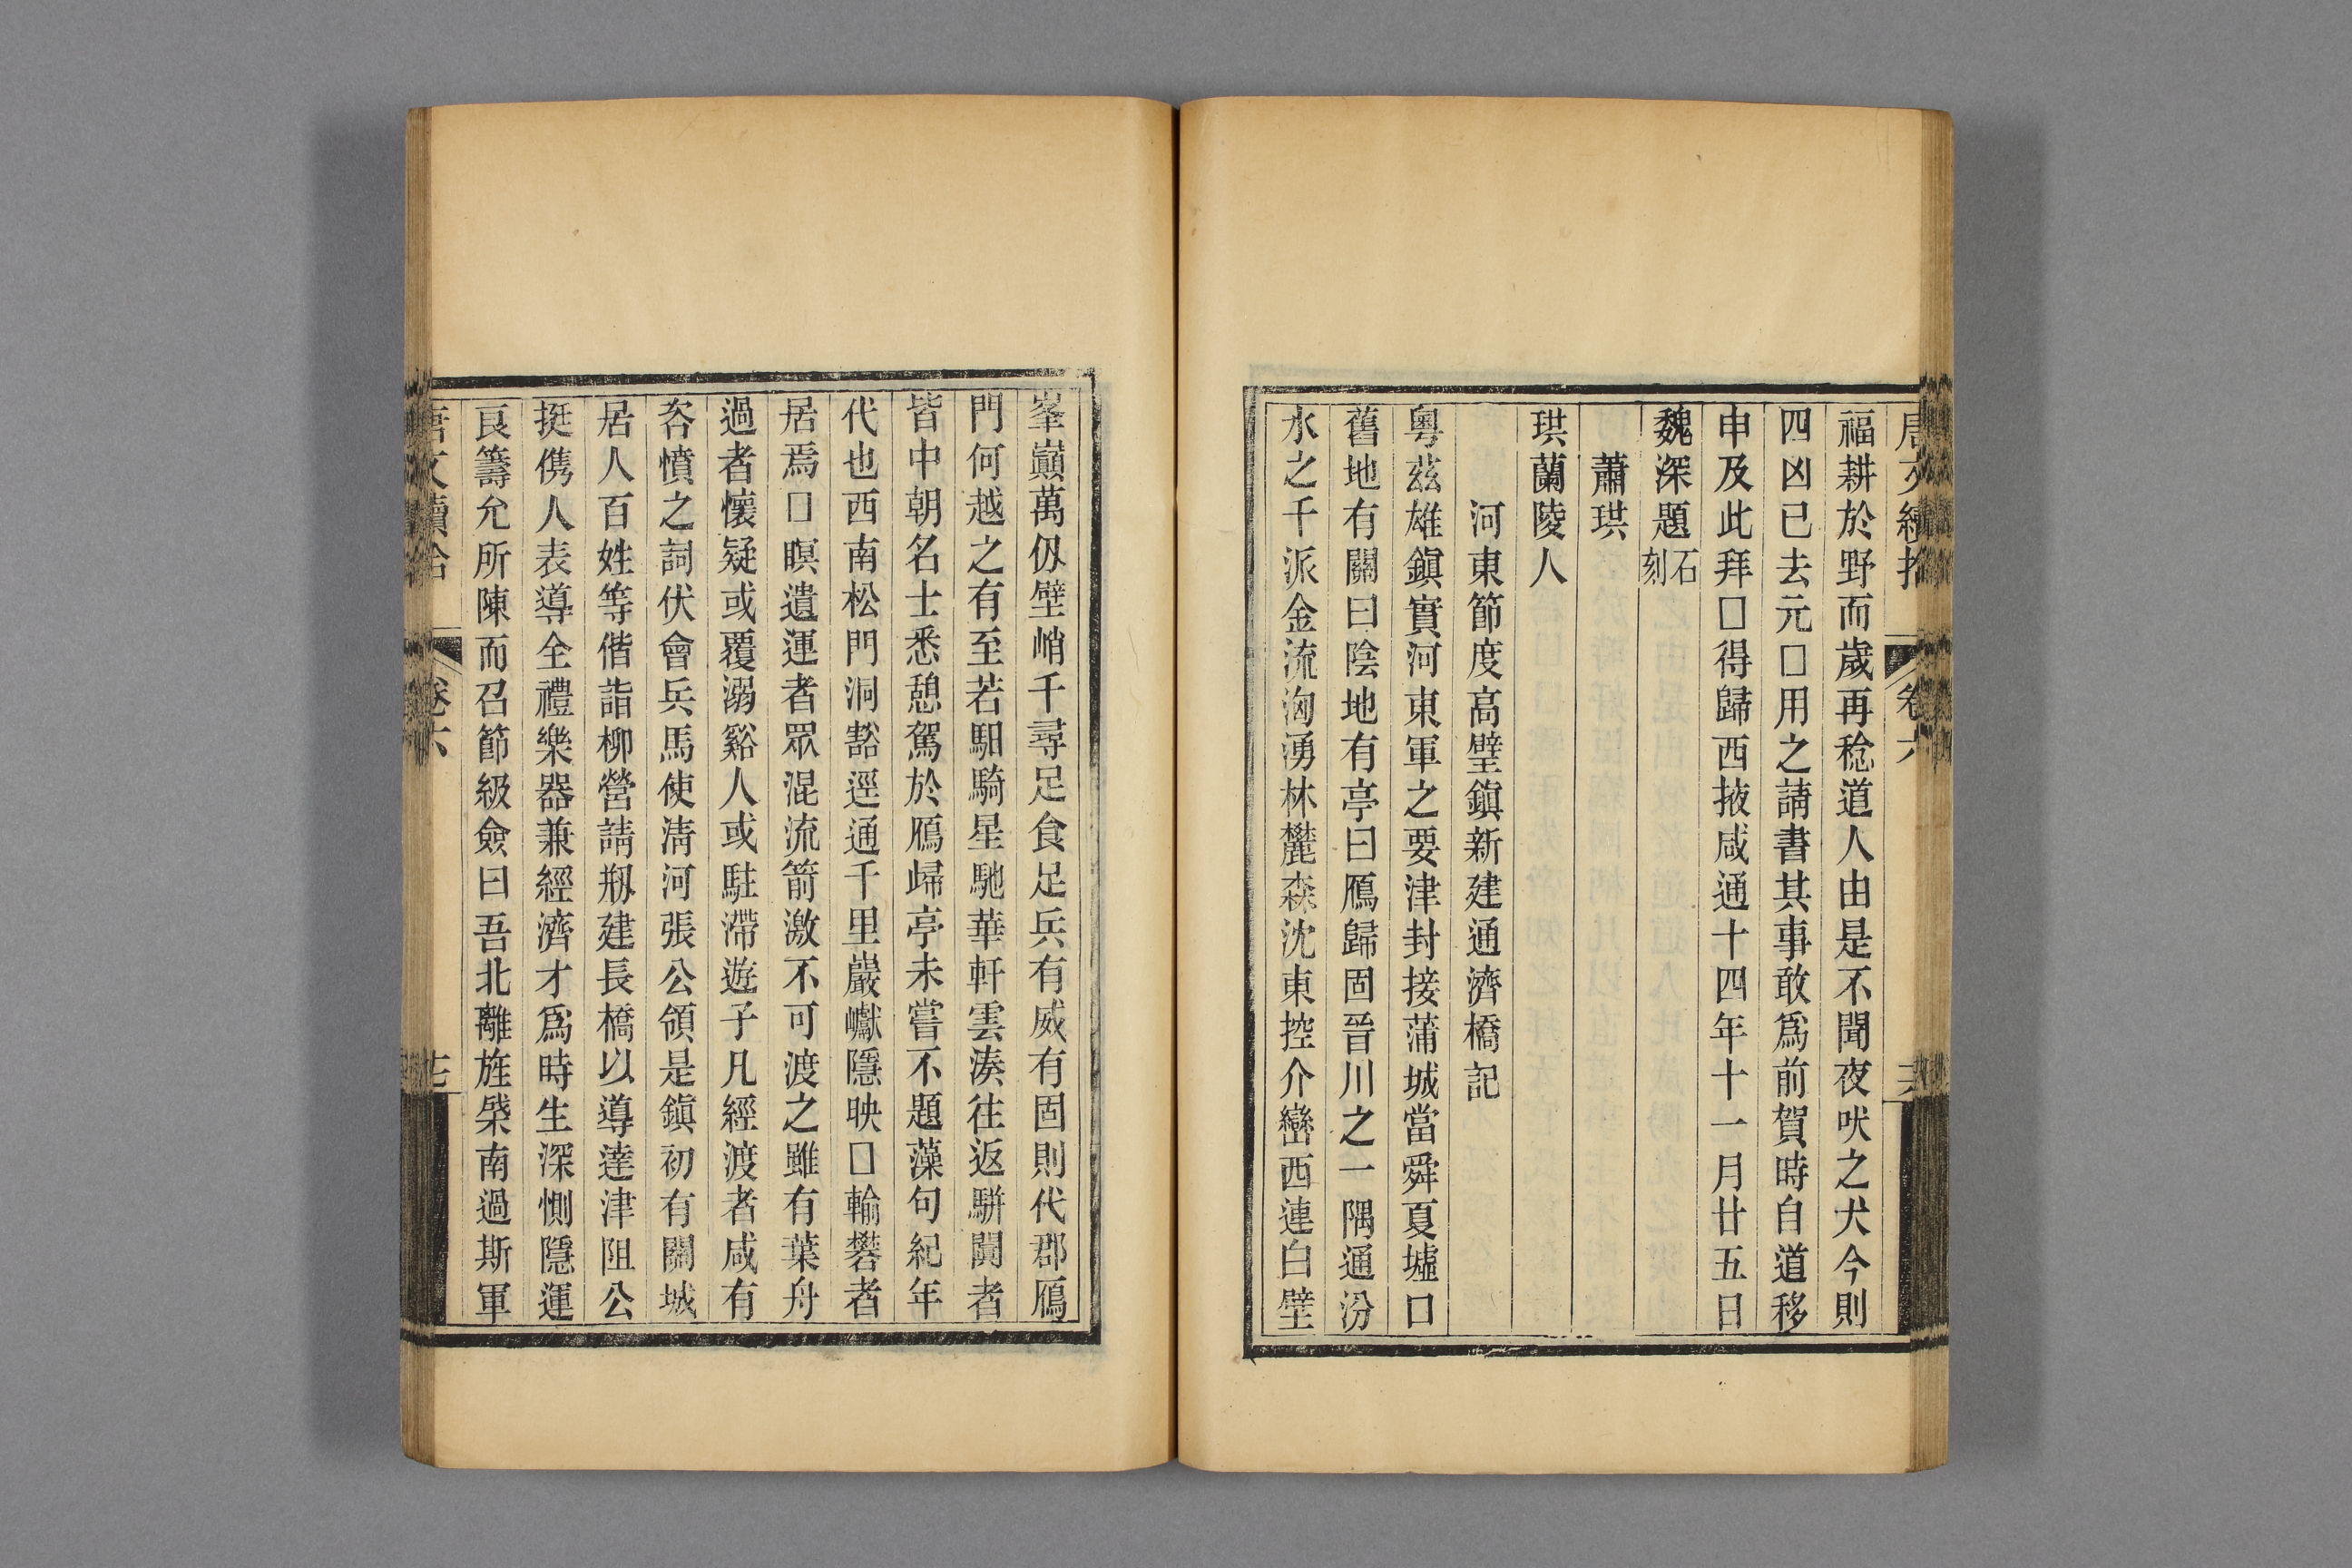 福耕於野而歲再稔道人由是不聞夜吠之犬今則
四凶已去元□用之請書其事敢爲前賀時自道移
申及此拜□得歸西掖咸通十四年十一月廿五日
魏深題石刻
蕭珙
珙蘭陵人
河東節度高壁鎭新建通濟橋記
粵茲雄鎭實河東軍之要津封接蒲城當舜夏墟口
舊地有關曰陰地有亭曰鴈歸固晉川之一隅通汾
水之千派金流洶湧林麓森沈東控介巒西連白壁
峯巔萬仭壁峭千尋足食足兵有威有固則代郡鴈
門何越之有至若馹騎星馳華軒雲湊往返駢闐者
皆中朝名士悉憩駕於鴈歸亭未嘗不題藻句紀年
代也西南松門洞豁逕通千里巖巘隱映□輪礬者
居焉□瞑遣運者眾混流箭激不可渡之雖有葉舟
過者懷疑或覆溺谿人或駐滯遊子凡經渡者咸有
咨憤之詞伏會兵馬使淸河張公領是鎭初有關城
居人百姓等偕詣柳營請刱建長橋以導達津阻公
挺儁人表導全禮樂器兼經濟才爲時生深惻隱運
良籌允所陳而召節級僉曰吾北離旌棨南過斯軍
卷六